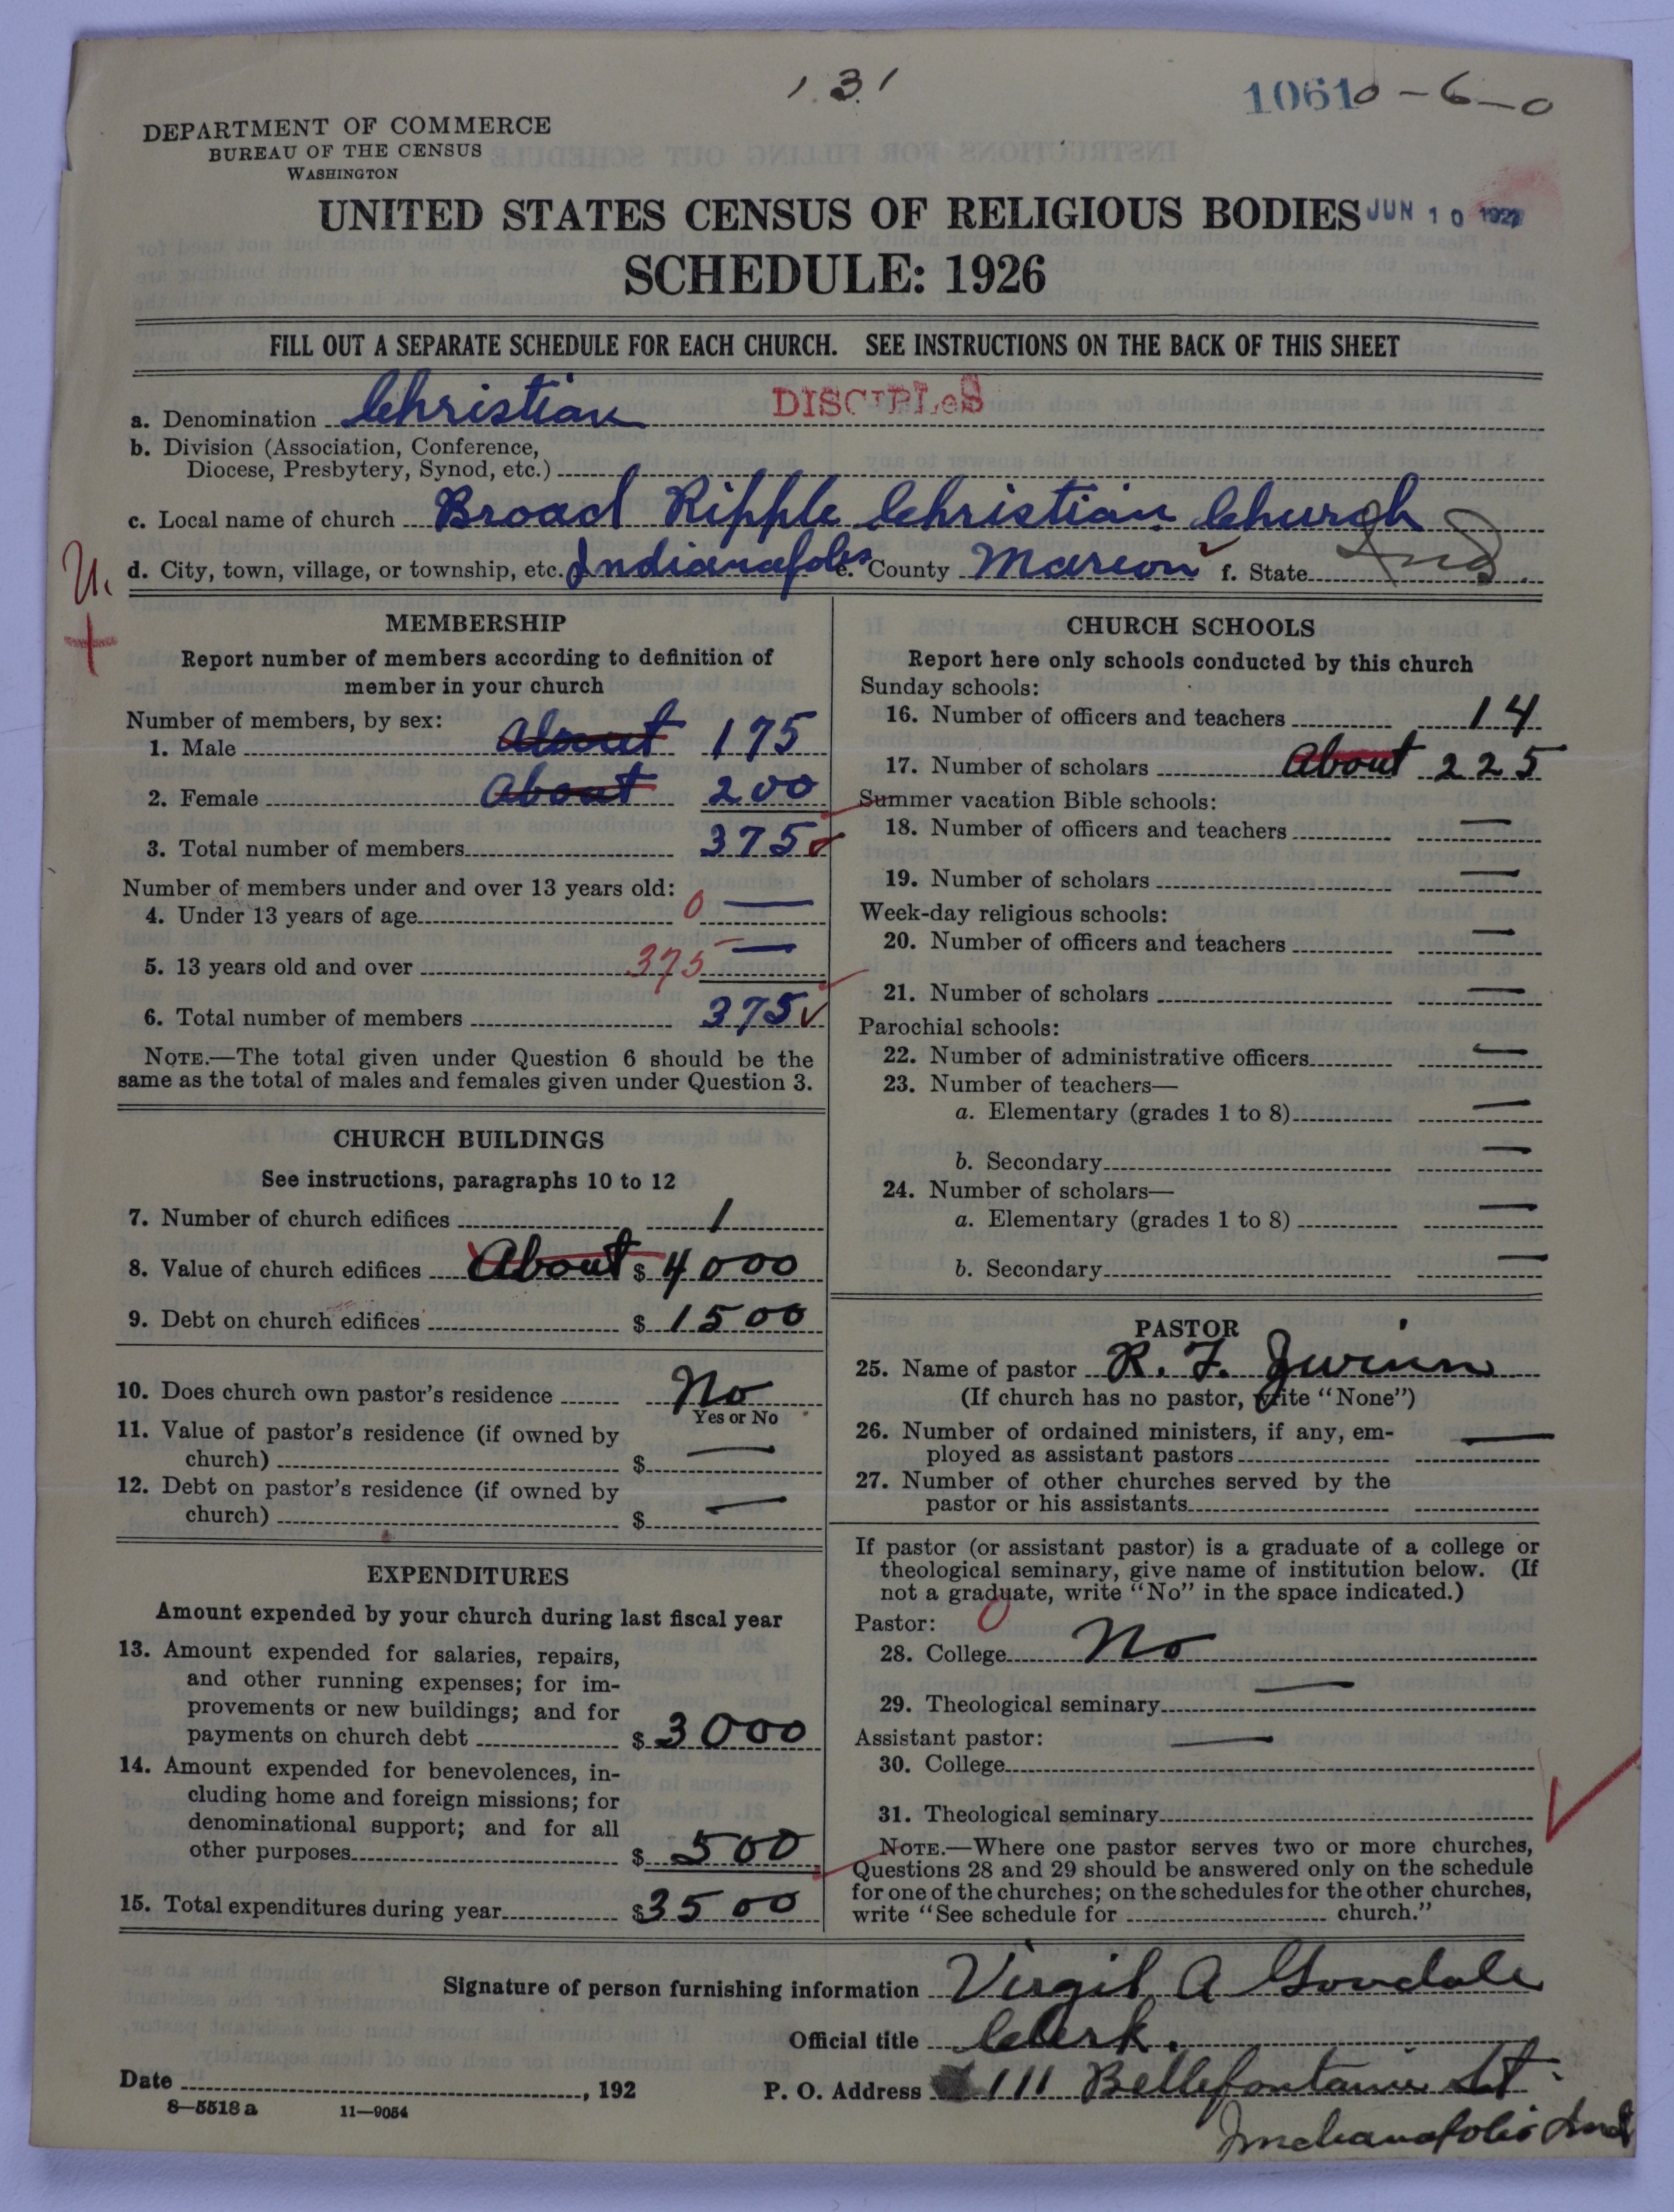 131
10610-6-0
DEPARTMENT OF COMMERCE
BUREAU OF THE CENSUS
WASHINGTON
UNITED STATES CENSUS OF RELIGIOUS BODIES
JUN 10 1927
SCHEDULE: 1926
FILL OUT A SEPARATE SCHEDULE FOR EACH CHURCH. SEE INSTRUCTIONS ON THE BACK OF THIS SHEET
a. Denomination Christian DISCIPLES
b. Division (Association, Conference,
Diocese, Presbytery, Synod, etc.)
c. Local name of church Broad Ripple Christian Church
d. City, town, village, or township, etc. Indianapolis e. County Marion f. State Ind.
MEMBERSHIP
Report number of members according to definition of
member in your church
Number of members, by sex:
1. Male About 175
2. Female About 200
3. Total number of members 375
Number of members under and over 13 years old:
4. Under 13 years of age 0 —
5. 13 years old and over 375 —
6. Total number of members 375
NOTE.—The total given under Question 6 should be the
same as the total of males and females given under Question 3.
CHURCH BUILDINGS
See instructions, paragraphs 10 to 12
7. Number of church edifices 1
8. Value of church edifices About $ 4000
9. Debt on church edifices $ 1500
10. Does church own pastor's residence No
Yes or No
11. Value of pastor's residence (if owned by
church) $ —
12. Debt on pastor's residence (if owned by
church) $ —
EXPENDITURES
Amount expended by your church during last fiscal year
13. Amount expended for salaries, repairs,
and other running expenses; for im-
provements or new buildings; and for
payments on church debt $ 3000
14. Amount expended for benevolences, in-
cluding home and foreign missions; for
denominational support; and for all
other purposes $ 500
15. Total expenditures during year $ 3500
CHURCH SCHOOLS
Report here only schools conducted by this church
Sunday schools:
16. Number of officers and teachers 14
17. Number of scholars About 225
Summer vacation Bible schools:
18. Number of officers and teachers —
19. Number of scholars —
Week-day religious schools:
20. Number of officers and teachers —
21. Number of scholars —
Parochial schools:
22. Number of administrative officers —
23. Number of teachers—
a. Elementary (grades 1 to 8) —
b. Secondary —
24. Number of scholars—
a. Elementary (grades 1 to 8) —
b. Secondary —
PASTOR
25. Name of pastor R. F.
(If church has no pastor, write "None")
26. Number of ordained ministers, if any, em-
ployed as assistant pastors —
27. Number of other churches served by the
pastor or his assistants
If pastor (or assistant pastor) is a graduate of a college or
theological seminary, give name of institution below. (If
not a graduate, write "No" in the space indicated.)
Pastor: 0
28. College No
29. Theological seminary —
Assistant pastor: —
30. College
31. Theological seminary
NOTE.—Where one pastor serves two or more churches,
Questions 28 and 29 should be answered only on the schedule
for one of the churches; on the schedules for the other churches,
write "See schedule for church."
Signature of person furnishing information Virgil A
Official title Clerk.
Date , 192
P. O. Address 6111 Bellefontaine St.
Indianapolis Ind
8—5518 a 11—9054